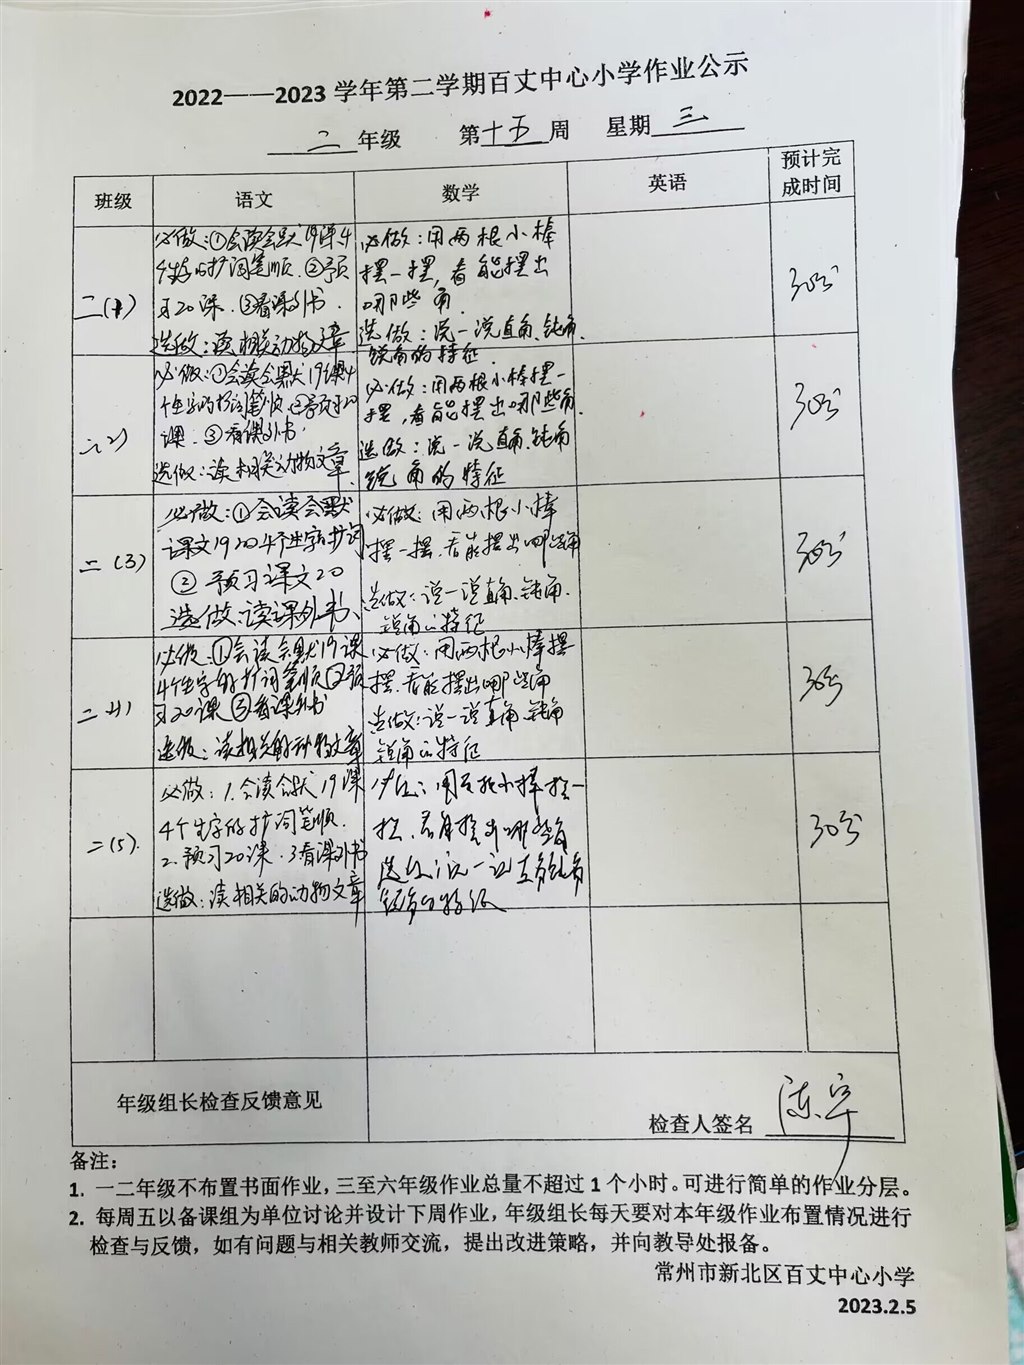 2022——2023 学年第二学期百丈中心小学作业公示
二年级 第十五周 星期三
班级 语文 数学 英语 预计完成时间
二(1)
必做:①会读会默19课4
个生字的扩词笔顺.②预
习20课.③看课外书.
选做:读相关动物文章
必做:用两根小棒
摆一摆,看能摆出
哪些角.
选做:说一说直角、钝角、
锐角的特征.
30分
二(2)
必做:①会读会默19课4
个生字的扩词笔顺.②预习20
课.③看课外书.
选做:读相关动物文章.
必做:用两根小棒摆一
摆,看能摆出哪些角.
选做:说一说直角、钝角
锐角的特征
30分
二(3)
必做:①会读会默
课文19的4个生字扩词
②预习课文20
选做:读课外书、
必做:用两根小棒
摆一摆.看能摆出哪些角
选做:说一说直角、钝角、
锐角的特征
30分
二(4)
必做:①会读会默19课
4个生字的扩词笔顺②预
习20课③看课外书
选做:读相关的动物文章
必做:用两根小棒摆
摆.看能摆出哪些角
选做:说一说直角、钝角
锐角的特征
30分
二(5).
必做:1.会读会默19课
4个生字的扩词笔顺.
2.预习20课.3看课外书
选做:读相关的动物文章
必做:用两根小棒摆一
摆.看能摆出哪些角
选做:说一说直角钝角
锐角的特征
30分
年级组长检查反馈意见
检查人签名
备注:
1. 一二年级不布置书面作业,三至六年级作业总量不超过 1 个小时。可进行简单的作业分层。
2. 每周五以备课组为单位讨论并设计下周作业,年级组长每天要对本年级作业布置情况进行
检查与反馈,如有问题与相关教师交流,提出改进策略,并向教导处报备。
常州市新北区百丈中心小学
2023.2.5